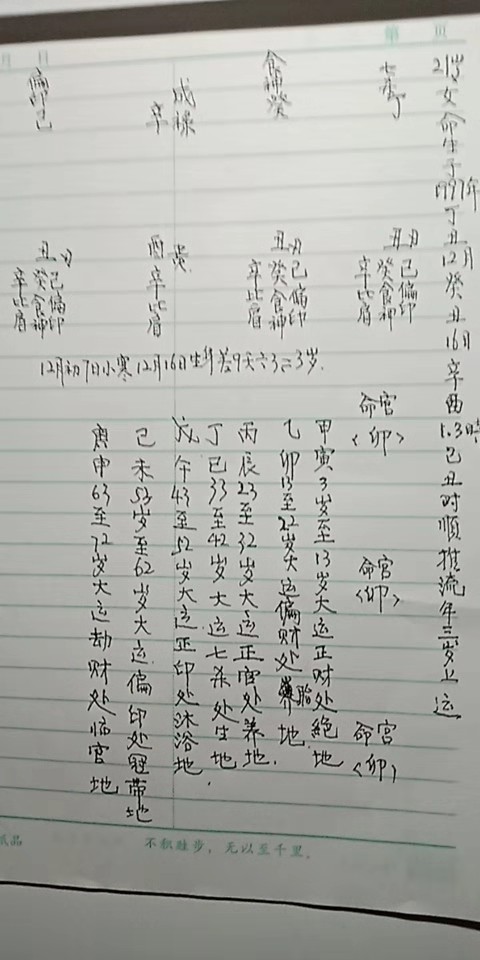 月 日
第 页
21岁女命生于1997年丁丑12月癸丑16日辛酉1.3時己丑时順推流年三岁上运
七杀丁
食神癸
成禄
辛
偏印己
丑月
己偏印
癸食神
辛比肩
丑月
己偏印
癸食神
辛比肩
酉
辛比肩
丑月
己偏印
癸食神
辛比肩
12月初7日小寒12月16日生年差9天六3二3岁.
命宫
<卯>
命宫
<卯>
命宫
<卯>
甲寅3岁至13岁大运正财处絶地
乙卯13至22岁大运偏财处胎地.
丙辰23至32岁大运正官处养地.
丁巳33至42岁大运七杀处生地.
戊午43至52岁大运正印处沐浴地
己未53岁至62岁大运偏印处冠带地
庚申63至72岁大运劫财处临官地
纸品
不积跬步，无以至千里.